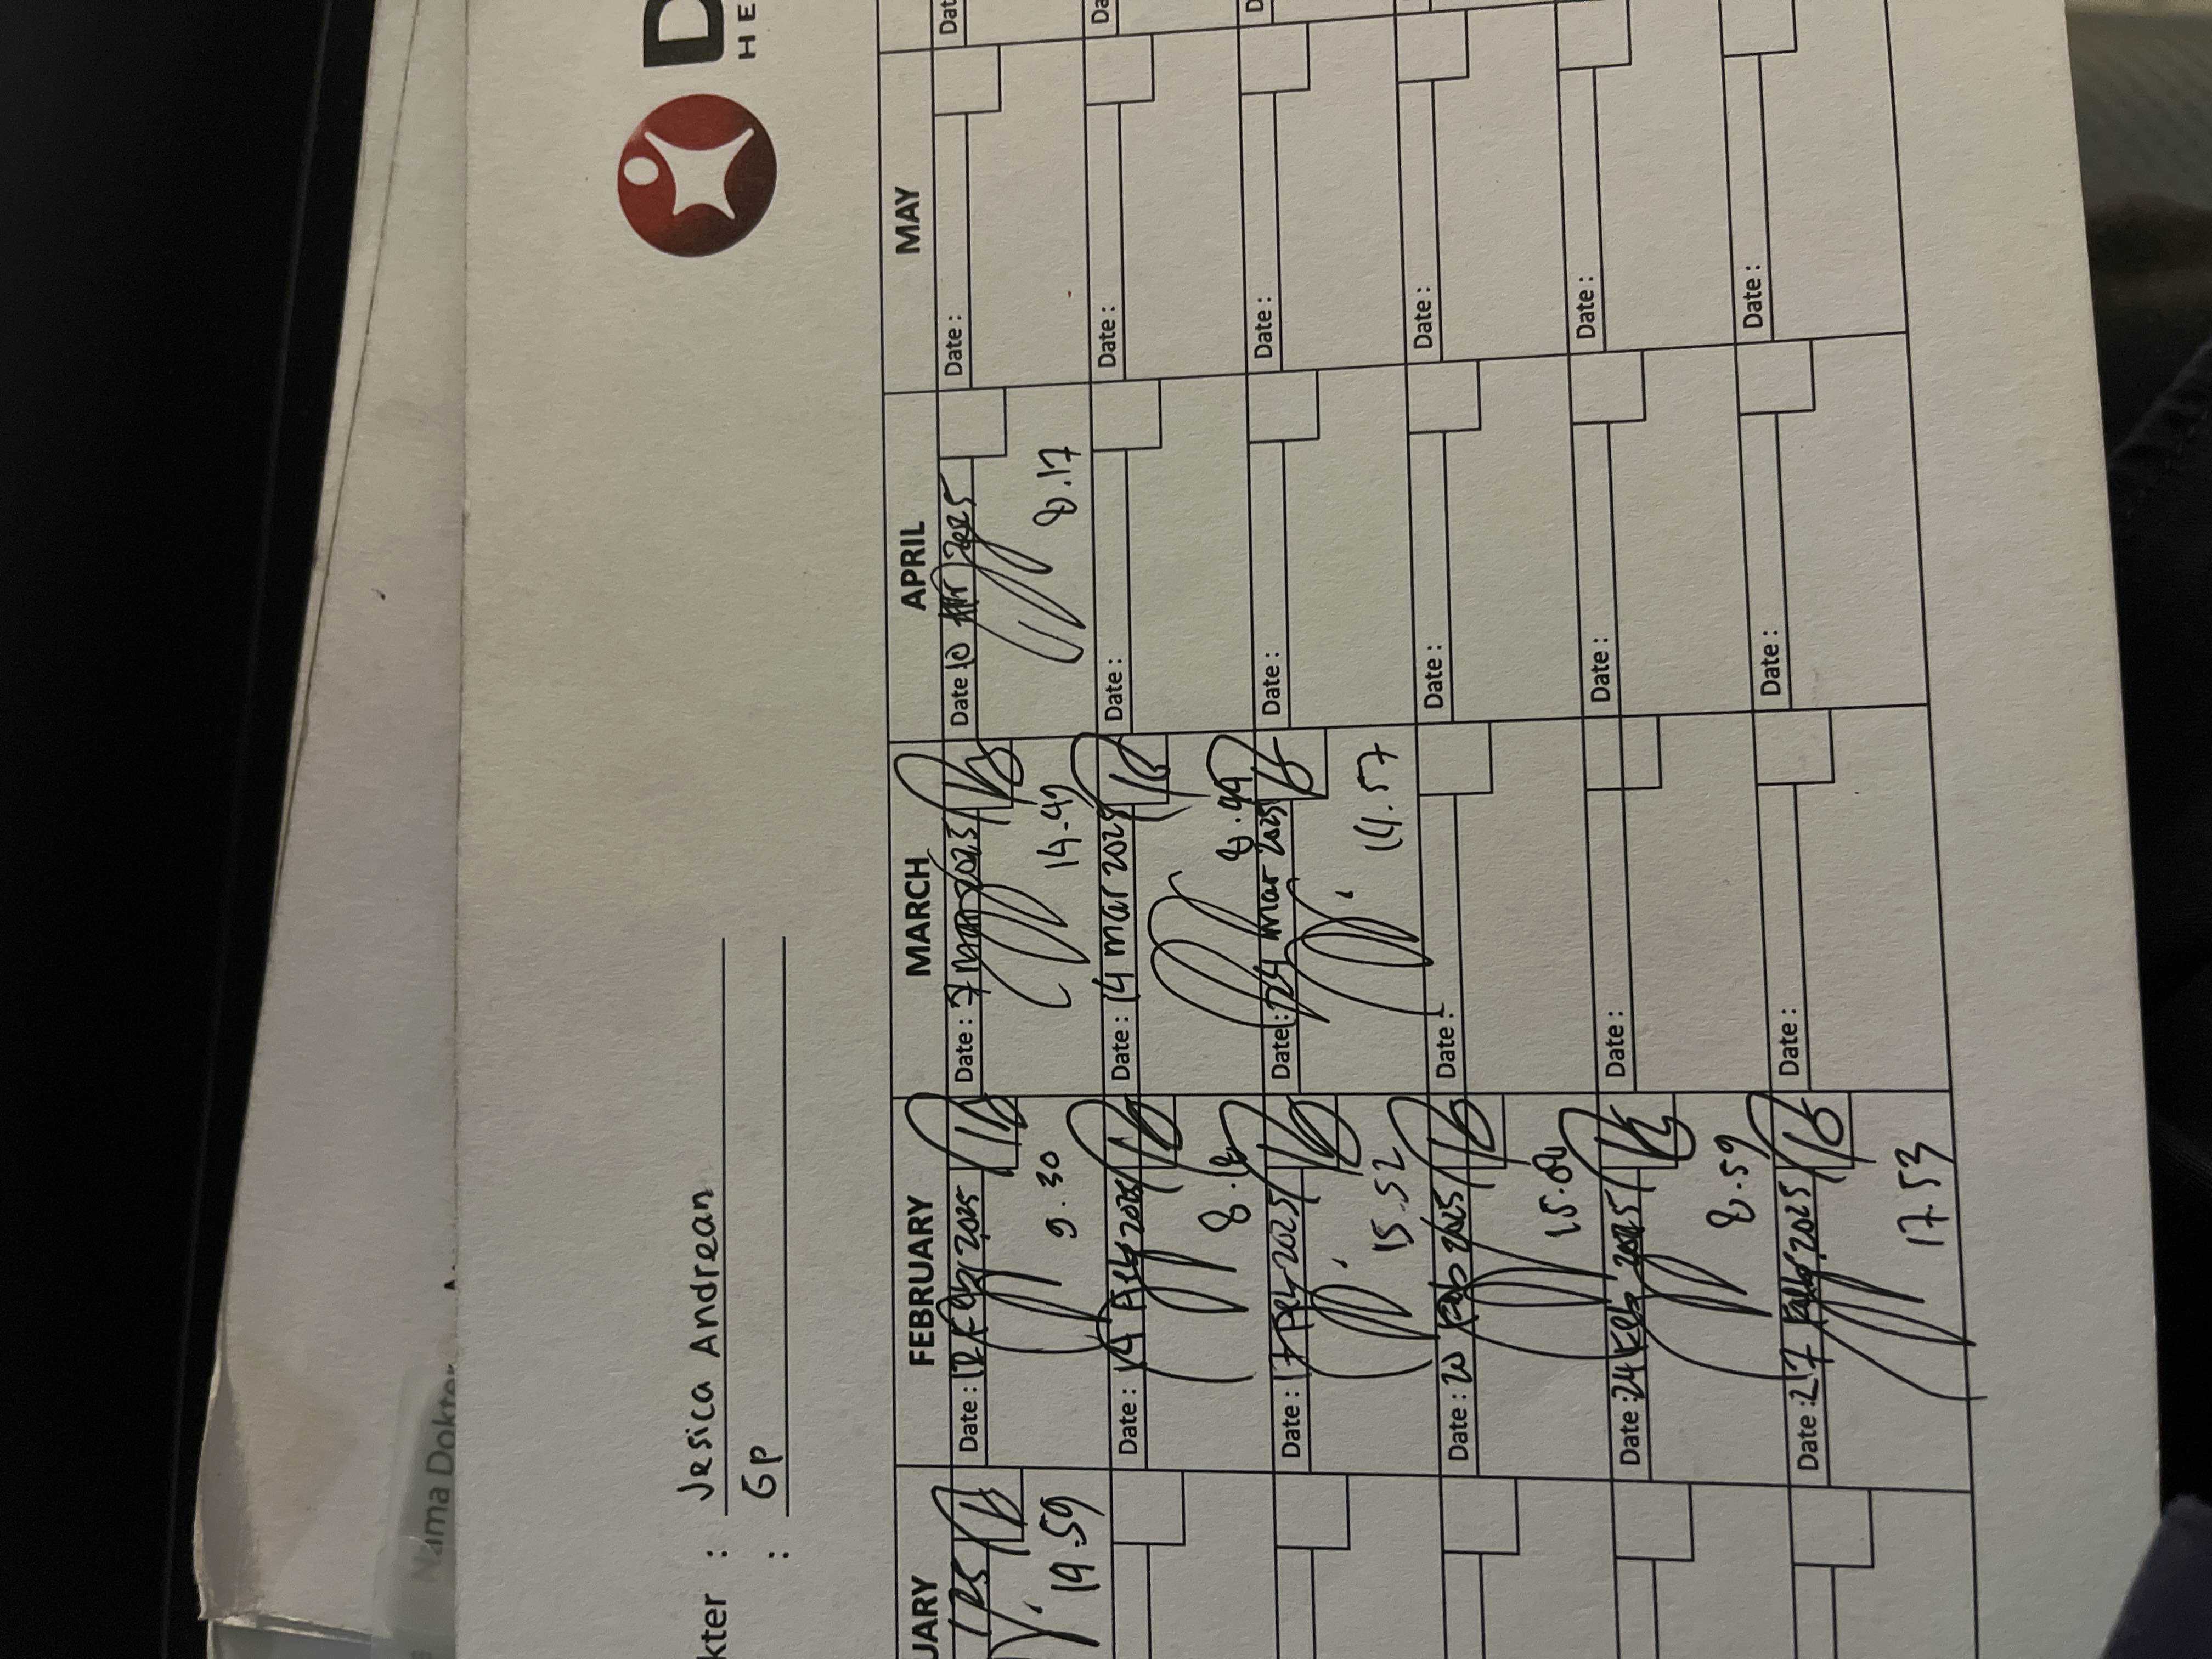 D
HE
kter : Jesica Andrean
: Gp
Nama Dokter
UARY FEBRUARY MARCH APRIL MAY
Date : 12 Feb 2025 Date : 7 mar 2025 Date 10 Apr 2025 Date : Dat
19.59 9.30 14.49 8.17
Date : 14 Feb 2025 Date : 14 mar 2025 Date : Date : Da
8.49
Date : 17 Feb 2025 Date : 24 mar 2025 Date : Date : D
15.52 14.57
Date : 20 Feb 2025 Date : Date : Date :
Date : 24 Feb 2025 Date : Date : Date :
8.59
Date : 27 Feb 2025 Date : Date : Date :
17.53